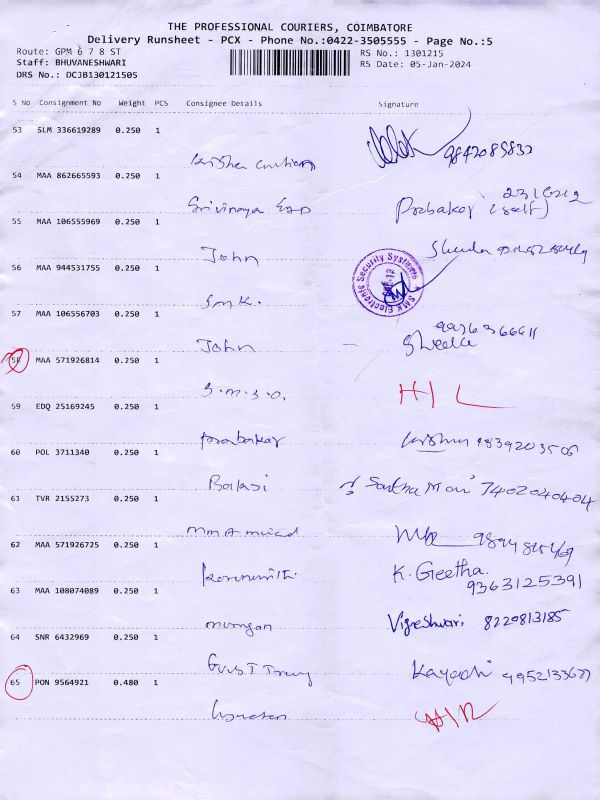 THE PROFESSIONAL COURIERS, COIMBATORE
Delivery Runsheet - PCX - Phone No.:0422-3505555 - Page No.:5
Route: GPM 6 7 8 ST RS No.: 1301215
Staff: BHUVANESHWARI RS Date: 05-Jan-2024
DRS No.: DCJB130121505
S No Consignment No Weight PCS Consignee Details Signature
53 SLM 336619289 0.250 1
9842085832
54 MAA 862665593 0.250 1
Prabakar (self)
55 MAA 106555969 0.250 1
John
56 MAA 944531755 0.250 1
SMK Electronic Security Systems
S.M.K.
57 MAA 106556703 0.250 1
9976366611
John
58 MAA 571926814 0.250 1
S.M.S.O. H/L
59 EDQ 25169245 0.250 1
Prabakar 9839203506
60 POL 3711340 0.250 1
Balaji 7402040404
61 TVR 2155273 0.250 1
62 MAA 571926725 0.250 1
K. Geetha.
9363125391
63 MAA 108074089 0.250 1
Murugan Vigneshwari 8220813185
64 SNR 6432969 0.250 1
65 PON 9564921 0.480 1